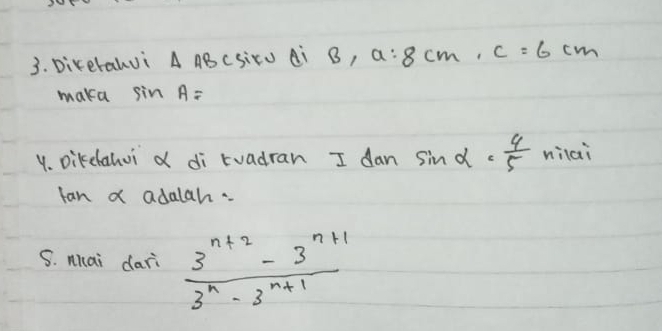 3. Diketahui Δ ABC siku di B, a : 8 cm, c = 6 cm
maka sin A =
4. Diketahui α di kuadran I dan sin α = 4/5 nilai
tan α adalah =
5. nilai dari (3^(n+2) - 3^(n+1)) / (3^n - 3^(n+1))